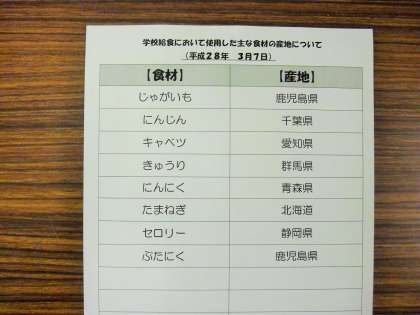 学校給食において使用した主な食材の産地について
(平成28年 3月7日)
【食材】 【産地】
じゃがいも 鹿児島県
にんじん 千葉県
キャベツ 愛知県
きゅうり 群馬県
にんにく 青森県
たまねぎ 北海道
セロリー 静岡県
ぶたにく 鹿児島県